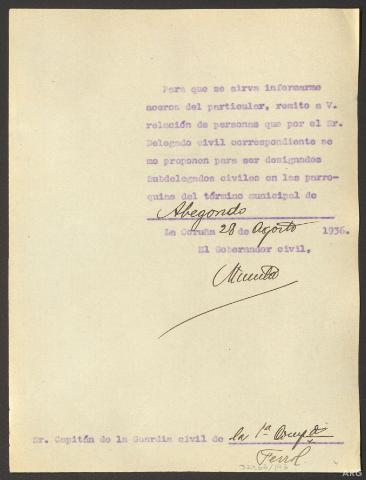 Para que se sirva informarme
acerca del particular, remito a V.
relación de personas que por el Sr.
Delegado civil correspondiente se
me proponen para ser designados
Subdelegados civiles en las parro-
quias del término municipal de
Abegondo
La Coruña 28 de Agosto 1936.
El Gobernador civil,
Sr. Capitán de la Guardia civil de la 1ª Compª
Ferrol
ARG